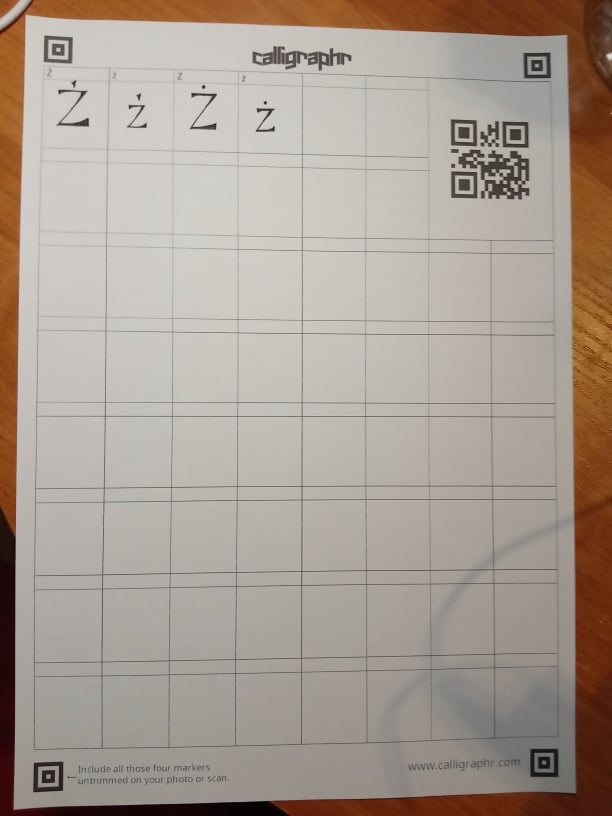 calligraphr
Ź ź Ż ż
Include all those four markers
untrimmed on your photo or scan.
www.calligraphr.com